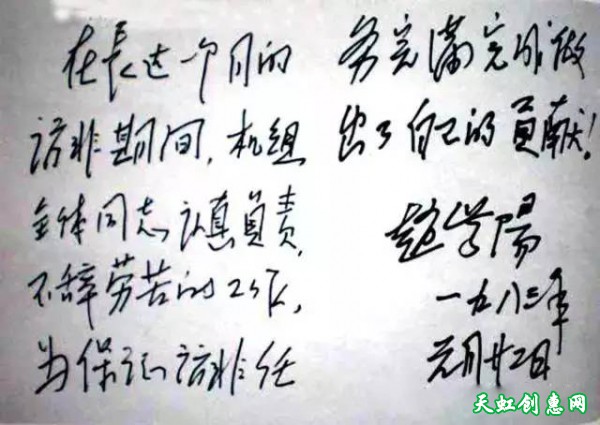 在長达一个月的
访非期间,机组
全体同志认真負责,
不辞劳苦的工作,
为保证访非任
务完满完成做
出了自己的貢献!
赵紫陽
一九八三年
元月廿二日
天虹创惠网